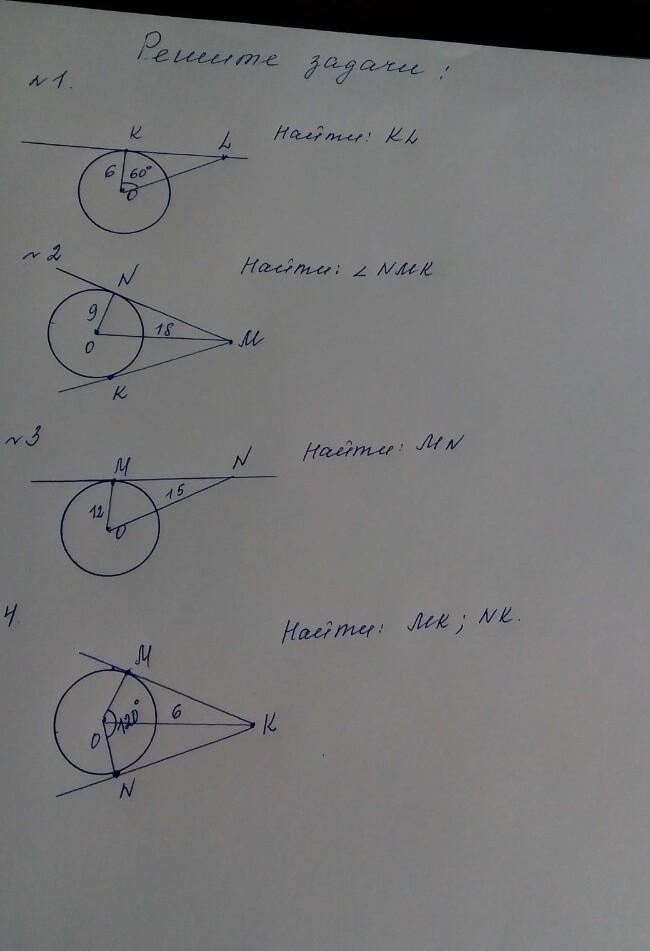 Решите задачи:
№1.
K
L
Найти: KL
6
60°
O
№2
Найти: ∠NMK
N
9
18
O
M
K
№3
Найти: MN
M
N
15
12
O
4.
Найти: MK; NK.
M
120°
6
O
K
N